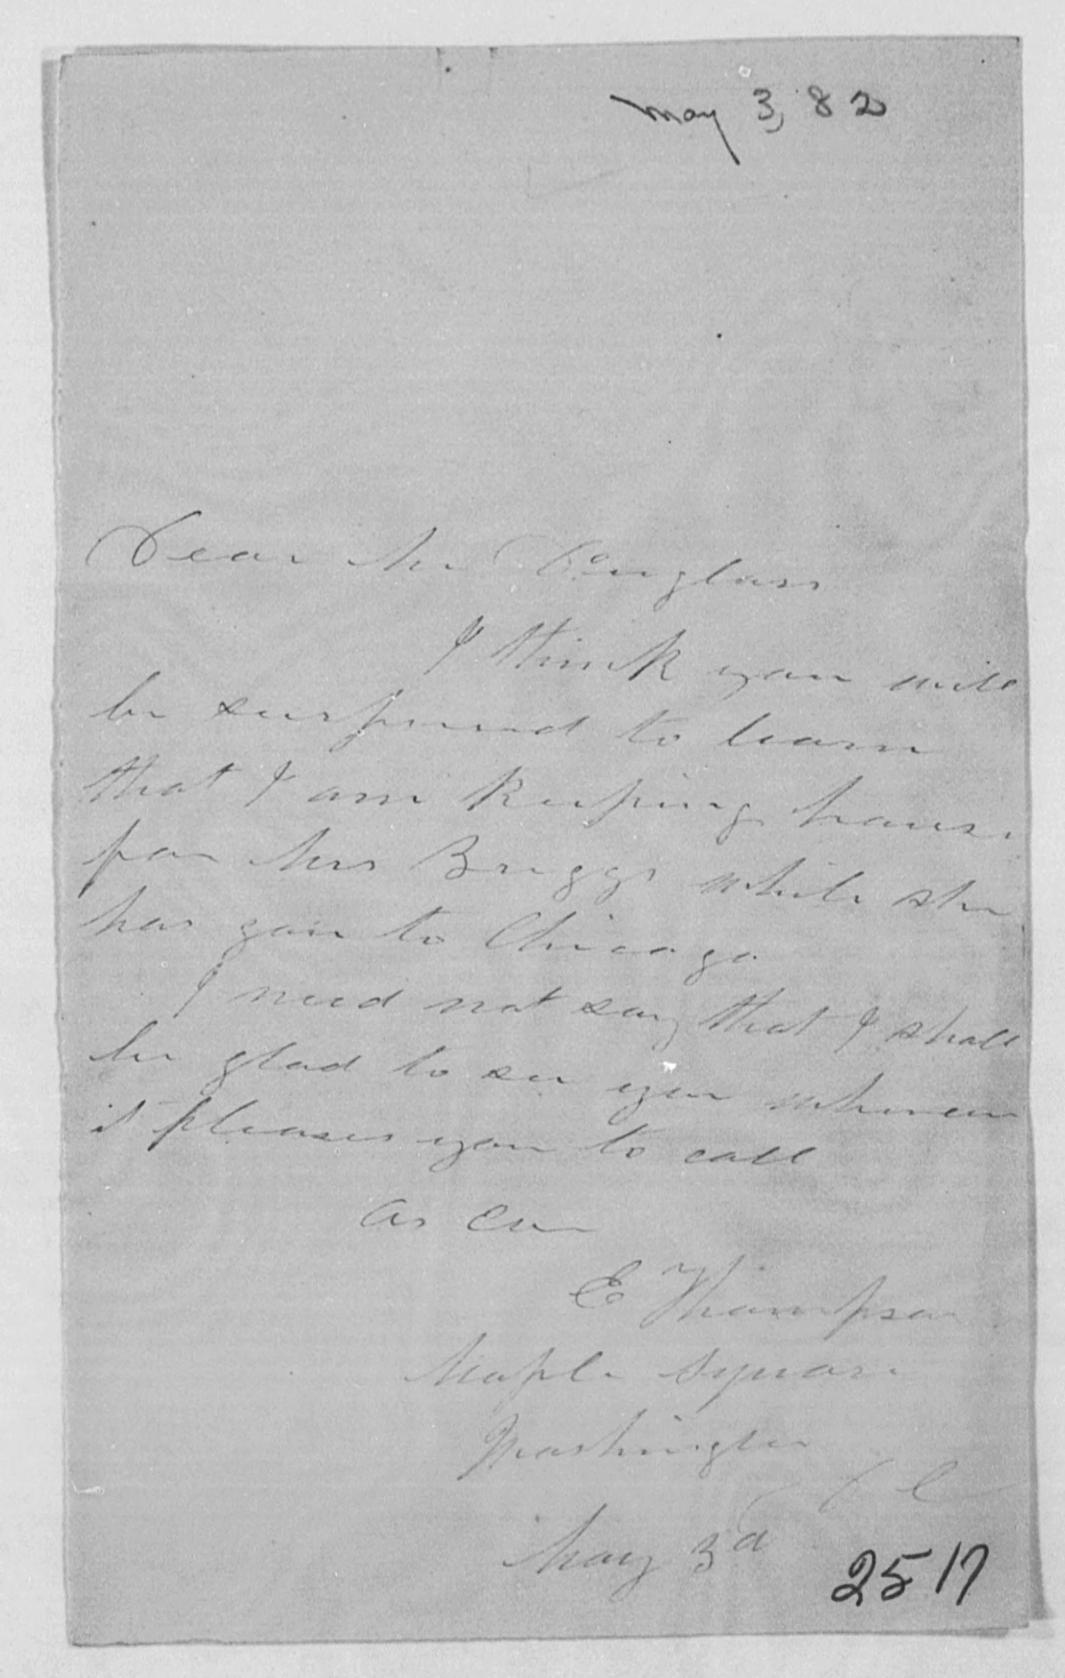 May 3, 82
Dear Mr Douglass
I think you will
be surprised to learn
that I am keeping house
for Mrs Briggs while she
has gone to Chicago
I need not say that I shall
be glad to see you whenever
it pleases you to call
As Ever
E Thompson
Maple Square
Washington
D C
May 3d
2517